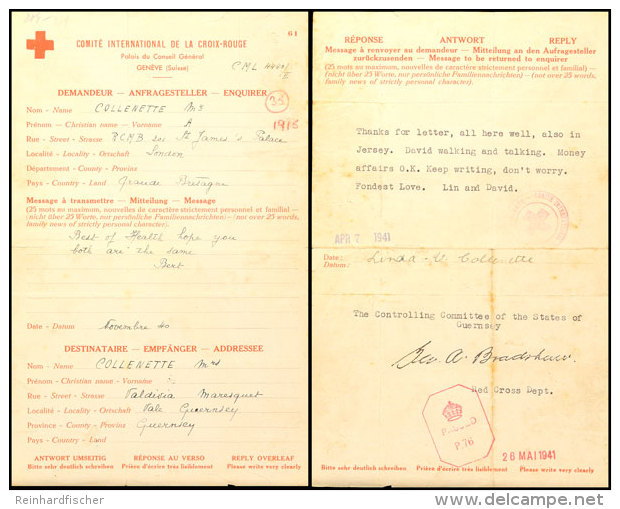 61
COMITÉ INTERNATIONAL DE LA CROIX-ROUGE
Palais du Conseil Général
GENÈVE (Suisse)
CML
DEMANDEUR — ANFRAGESTELLER — ENQUIRER
23
Nom - Name COLLENETTE Mr
1915
Prénom — Christian name — Vorname A
Rue — Street — Strasse St James's Palace
Localité — Locality — Ortschaft London
Département — County — Provinz
Pays — Country — Land Grande Bretagne
Message à transmettre — Mitteilung — Message
(25 mots au maximum, nouvelles de caractère strictement personnel et familial) —
(nicht über 25 Worte, nur persönliche Familiennachrichten) — (not over 25 words,
family news of strictly personal character).
Best of Health hope you
both are the same
Bert
Date — Datum Novembre 40
DESTINATAIRE — EMPFÄNGER — ADDRESSEE
Nom — Name COLLENETTE Mrs
Prénom — Christian name — Vorname
Rue — Street — Strasse Valdisia Maresquet
Localité — Locality — Ortschaft Vale Guernsey
Province — County — Provinz Guernsey
Pays — Country — Land
ANTWORT UMSEITIG RÉPONSE AU VERSO REPLY OVERLEAF
Bitte sehr deutlich schreiben Prière d'écrire très lisiblement Please write very clearly
RÉPONSE ANTWORT REPLY
Message à renvoyer au demandeur — Mitteilung an den Anfragesteller
zurückzusenden — Message to be returned to enquirer
(25 mots au maximum, nouvelles de caractère strictement personnel et familial) —
(nicht über 25 Worte, nur persönliche Familiennachrichten) — (not over 25 words,
family news of strictly personal character).
Thanks for letter, all here well, also in
Jersey. David walking and talking. Money
affairs O.K. Keep writing, don't worry.
Fondest Love. Lin and David.
APR 7 1941
Date:
Datum:
Linda V. Collenette
The Controlling Committee of the States of
Guernsey
Geo A. Bradshaw.
Red Cross Dept.
PASSED
P.76
26 MAI 1941
Bitte sehr deutlich schreiben Prière d'écrire très lisiblement Please write very clearly
Reinhardfischer
delcampe.net